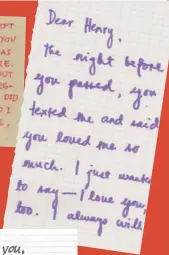 OPT
YOU
AS
E.
OUT
G-
DID
O I
E,
Dear Henry,
The night before
you passed, you
texted me and said
you loved me so
much. I just wanted
to say—I love you,
too. I always will
you,